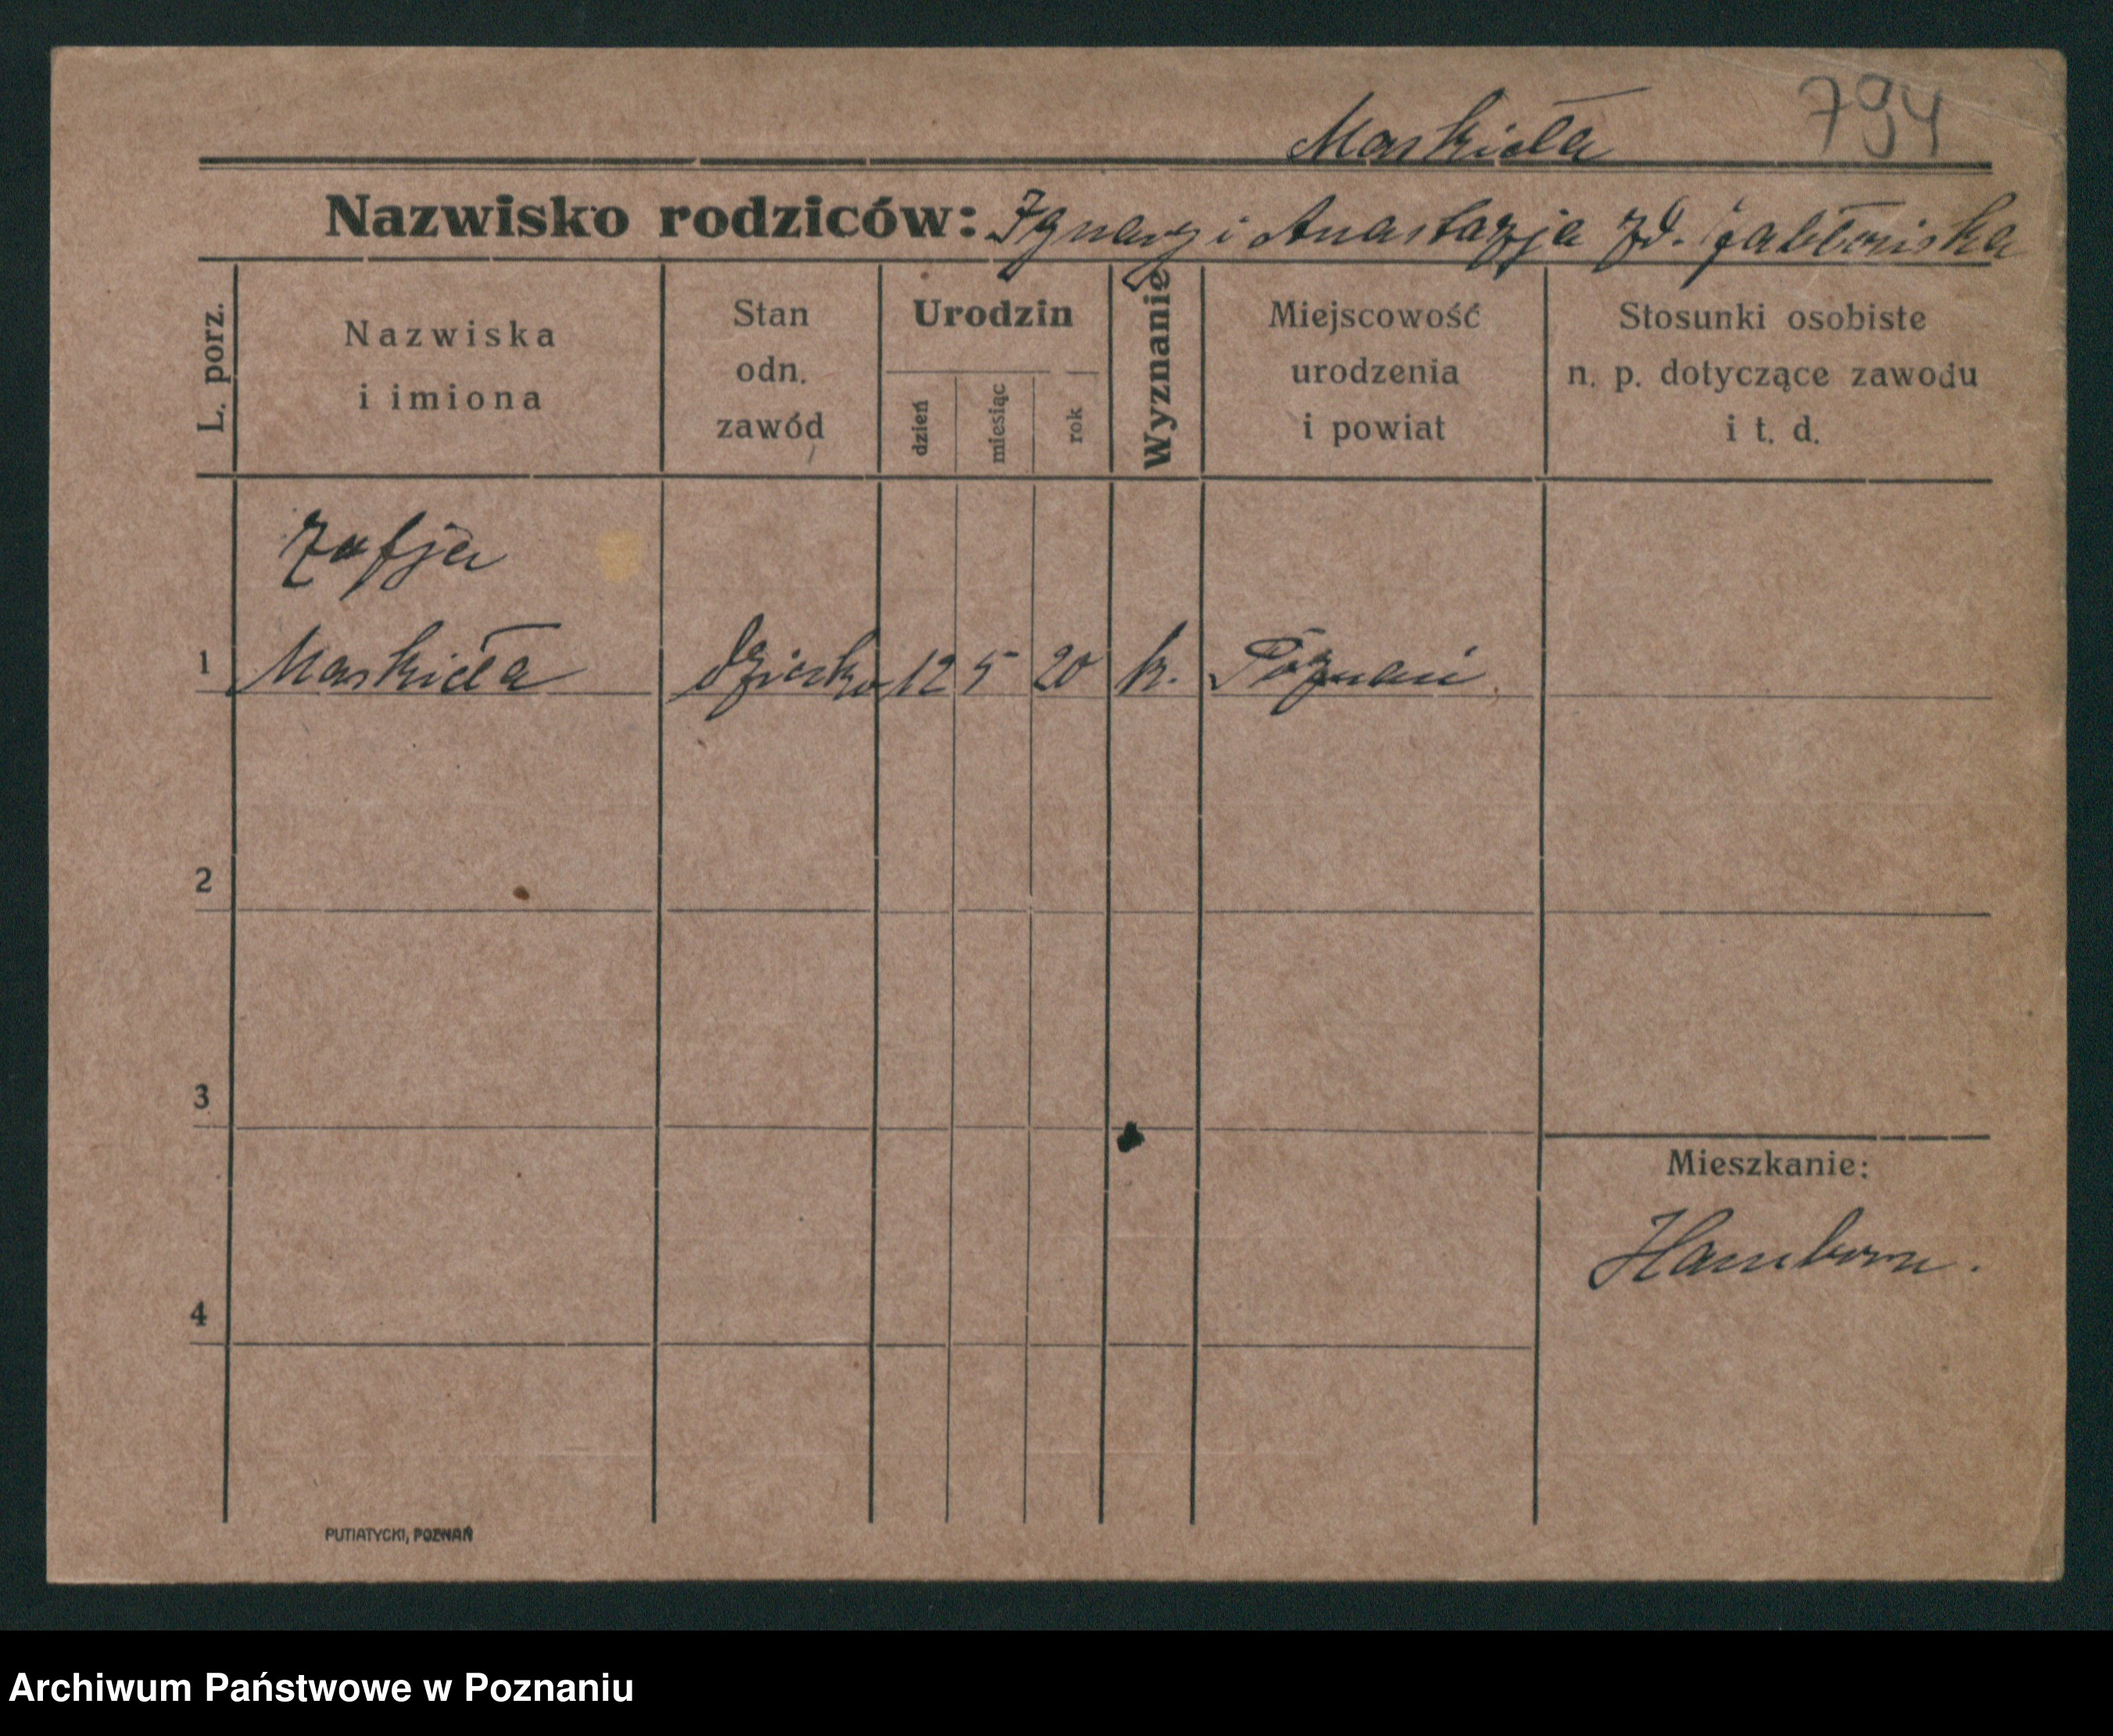 794
Maskieła
Nazwisko rodziców: Ignacy i Anastazja zd. Jabłońska
L. porz.
Nazwiska
i imiona
Stan
odn.
zawód
Urodzin
dzień
miesiąc
rok
Wyznanie
Miejscowość
urodzenia
i powiat
Stosunki osobiste
n. p. dotyczące zawodu
i t. d.
Zofja
1 Maskieła dziecko 12 5 20 k. Poznań
2
3
Mieszkanie:
Hamborn.
4
PUTIATYCKI, POZNAŃ
Archiwum Państwowe w Poznaniu